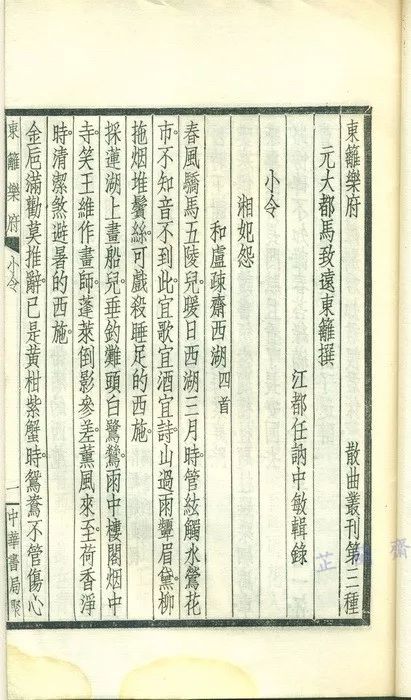 東籬樂府 散曲叢刊第二種
元大都馬致遠東籬撰
江都任訥中敏輯錄
小令
湘妃怨
和盧疎齋西湖 四首
春風驕馬五陵兒。暖日西湖三月時。管絃觸水鶯花
市。不知音不到此。宜歌宜酒宜詩。山過雨顰眉黛。柳
拖烟堆鬢絲。可戲殺睡足的西施。
採蓮湖上畫船兒。垂釣灘頭白鷺鷥。雨中樓閣烟中
寺。笑王維作畫師。蓬萊倒影參差。薰風來至。荷香淨
時。清潔煞避暑的西施。
金卮滿勸莫推辭。已是黃柑紫蟹時。鴛鴦不管傷心
東籬樂府 小令 一 中華書局聚